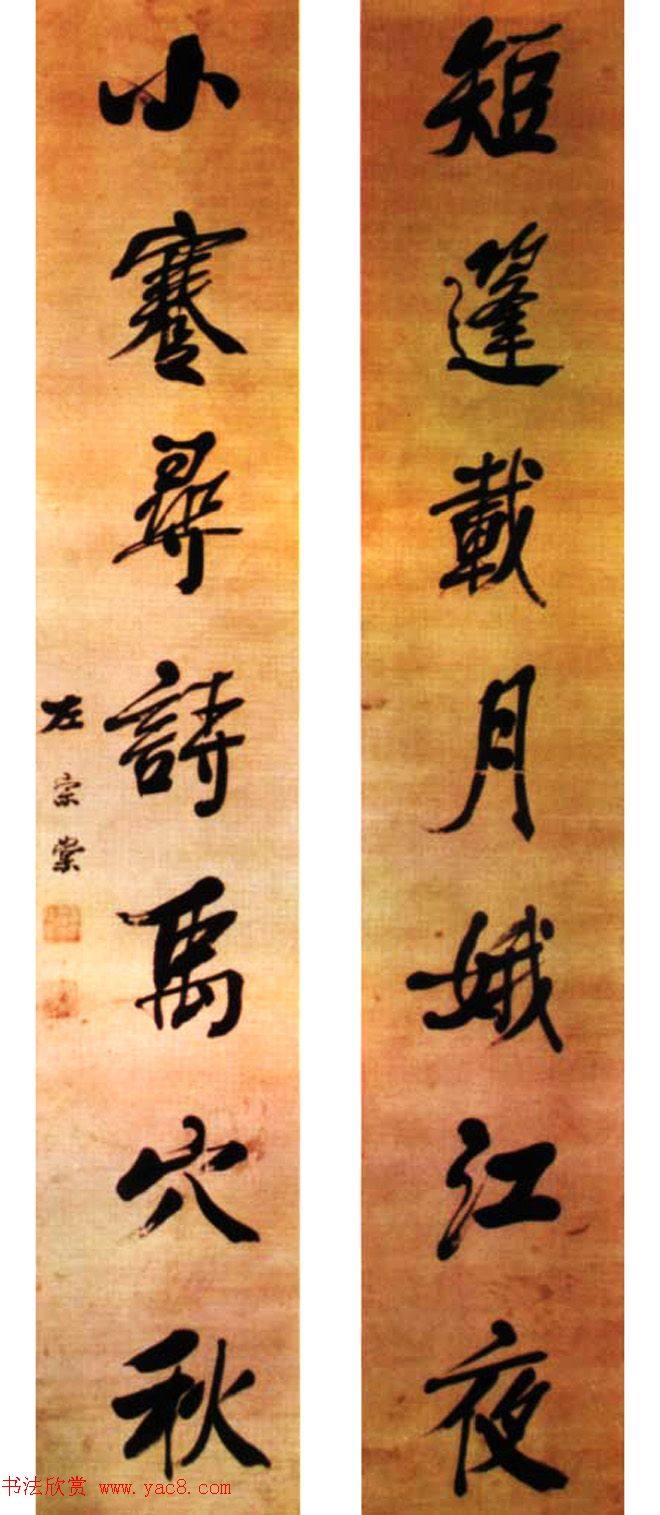 短篷載月娥江夜
小蹇尋詩禹穴秋
左宗棠
书法欣赏 www.yac8.com